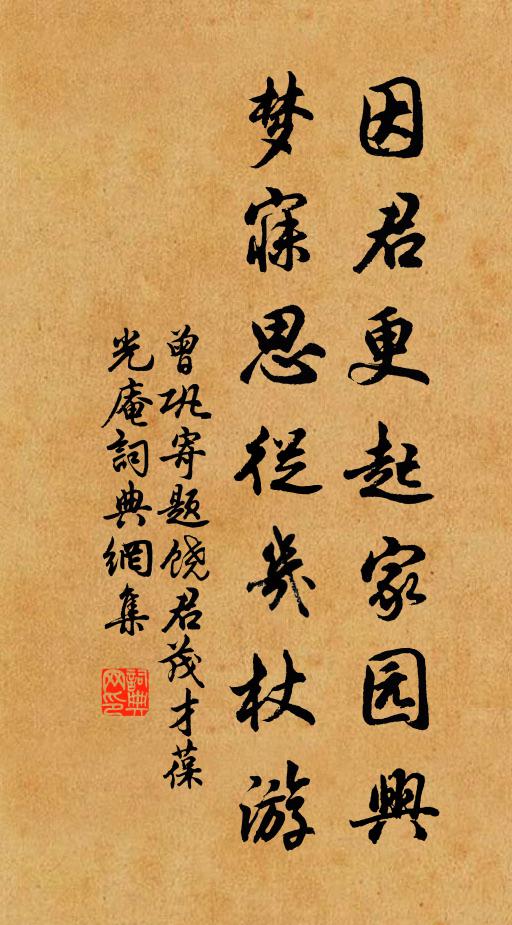 因君更起家园興
梦寐思從几杖游
曾巩寄题饶君茂才葆
光庵詞典網集
詞典网印